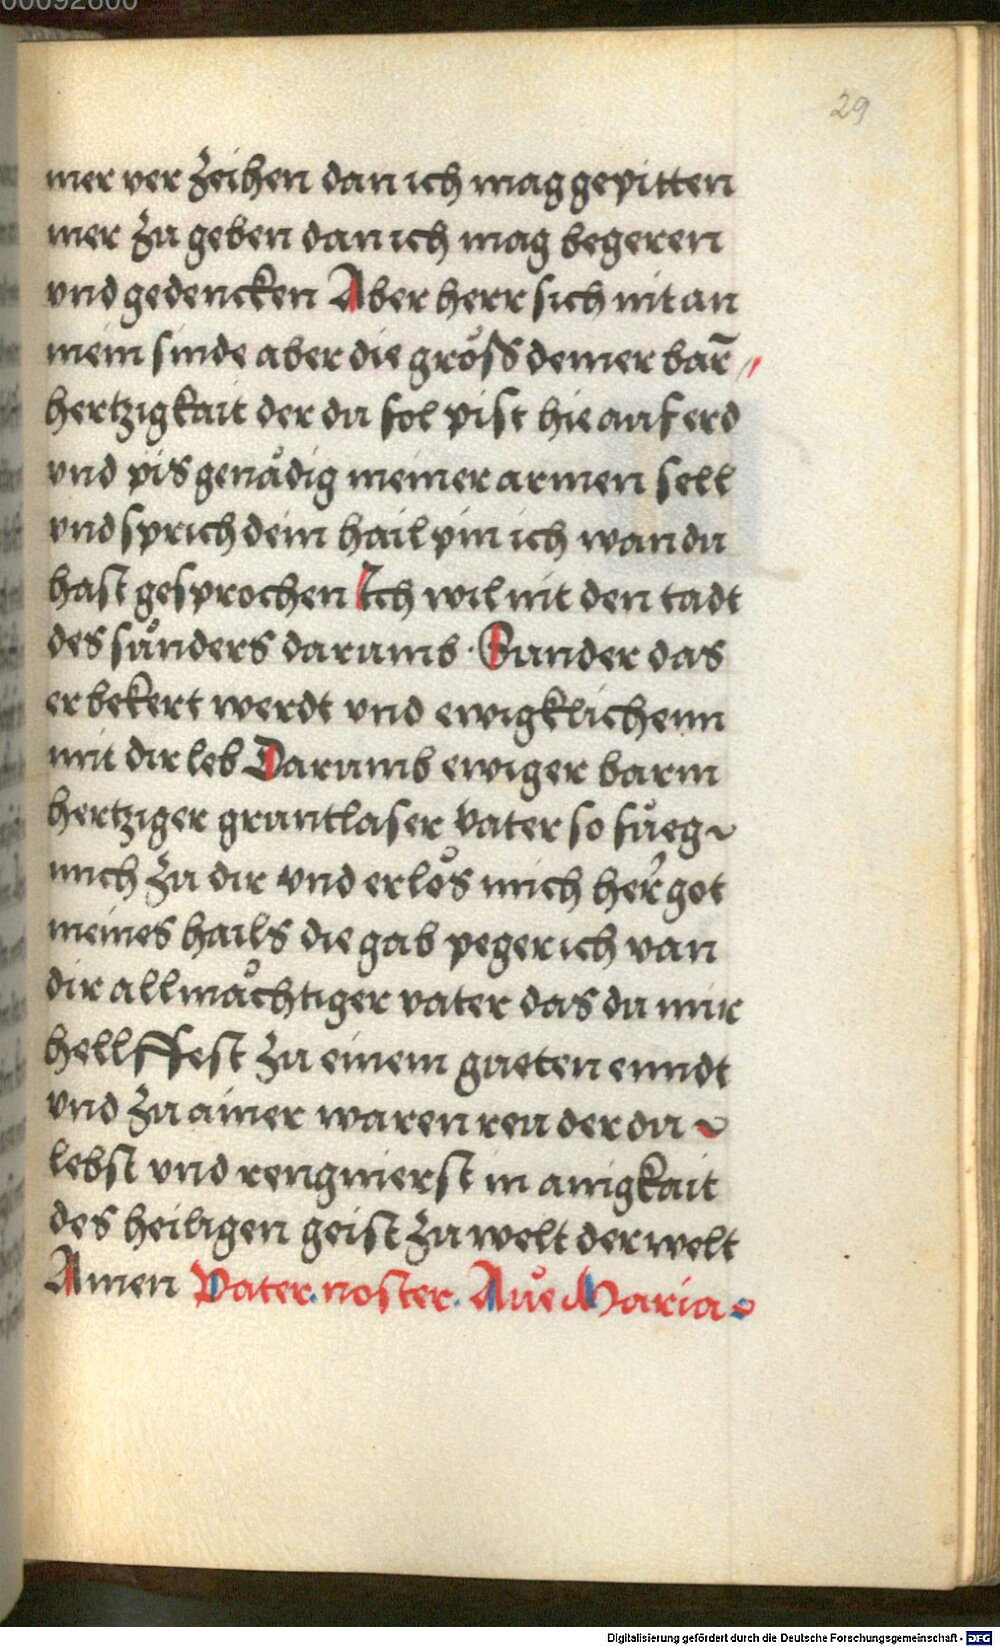 00092600
29
mer ver zeihen dan ich mag gepitten
mer zu geben dan ich mag begeren
vnd gedencken Aber herr sich nit an
mein sinde aber die gröss deiner bar̄
hertzigkait der du fol pist hie auf erd
vnd pis genådig meiner armen sell
vnd sprich dein hail pin ich wan du
hast gesprochen Ich wil nit den tadt
des sůnders darumb · Sunder das
er bekert werdt vnd ewigklichenn
mit dir leb Darumb ewiger barm
hertziger gruntlaser vater so fůeg
mich zu dir vnd erlös mich her got
meines hails die gab peger ich van
dir allmåchtiger vater das du mir
hellffest zu einem gueten enndt
vnd zu ainer waren reu der du
lebst vnd rengnierst in ainigkait
des heiligen geist zu welt der welt
Amen Pater. noster. Aue Maria
Digitalisierung gefördert durch die Deutsche Forschungsgemeinschaft - DFG